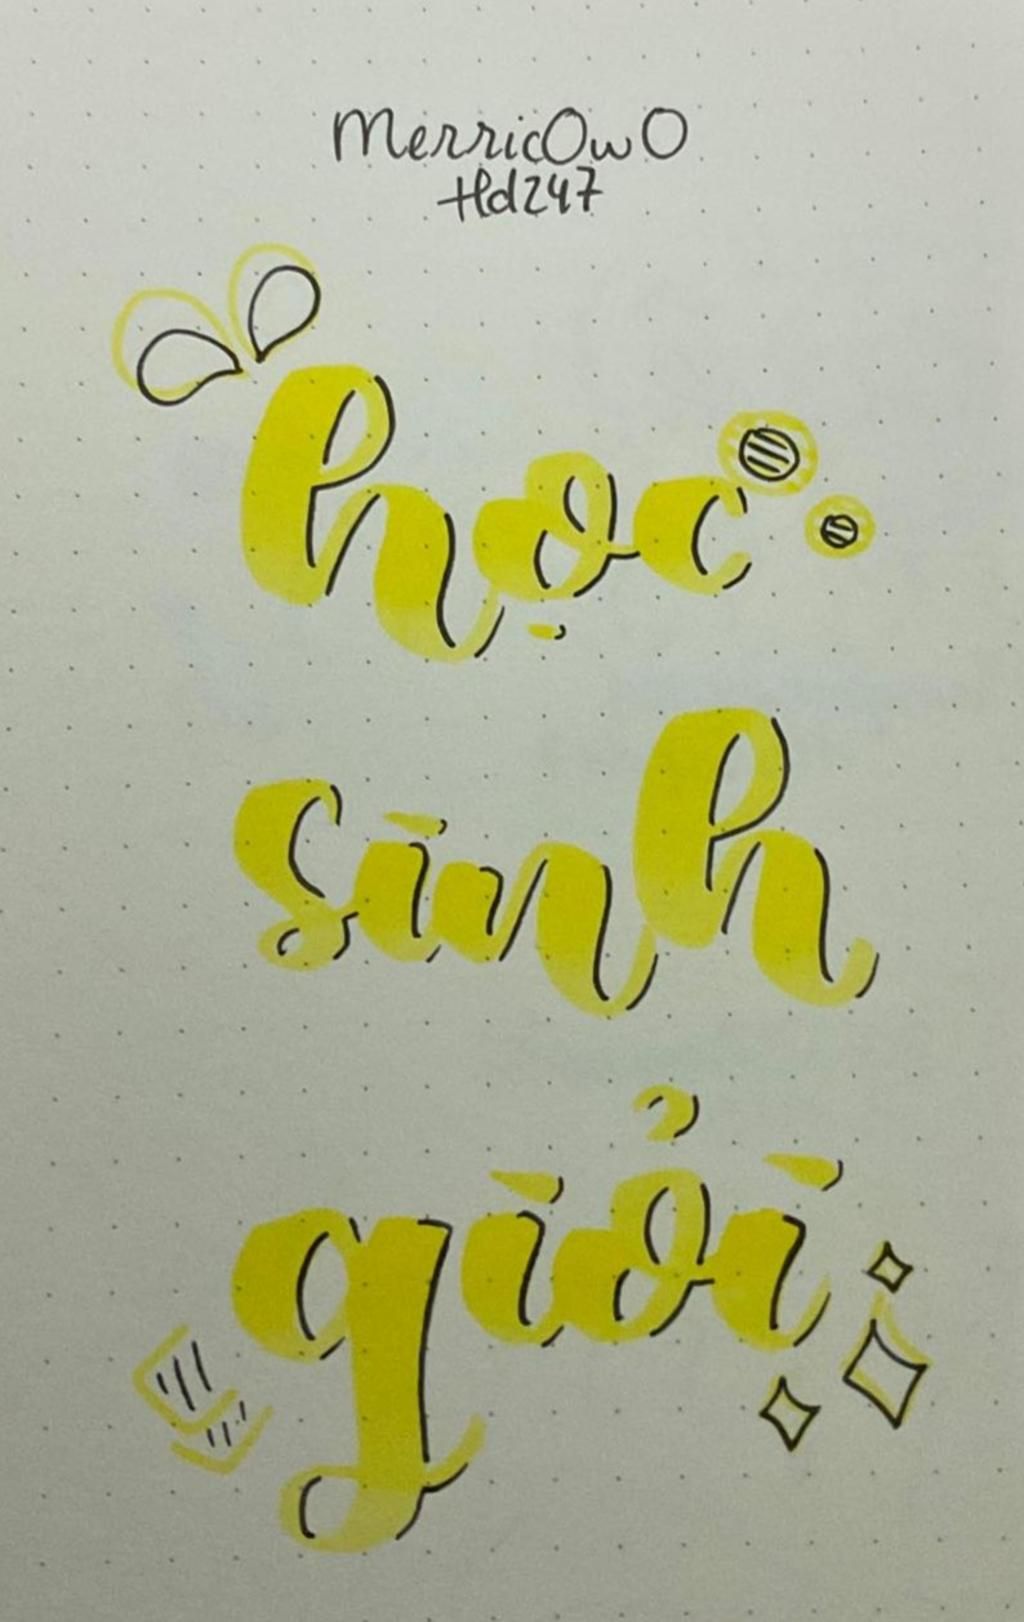 MerricOwO
Hd247
học
sinh
giỏi